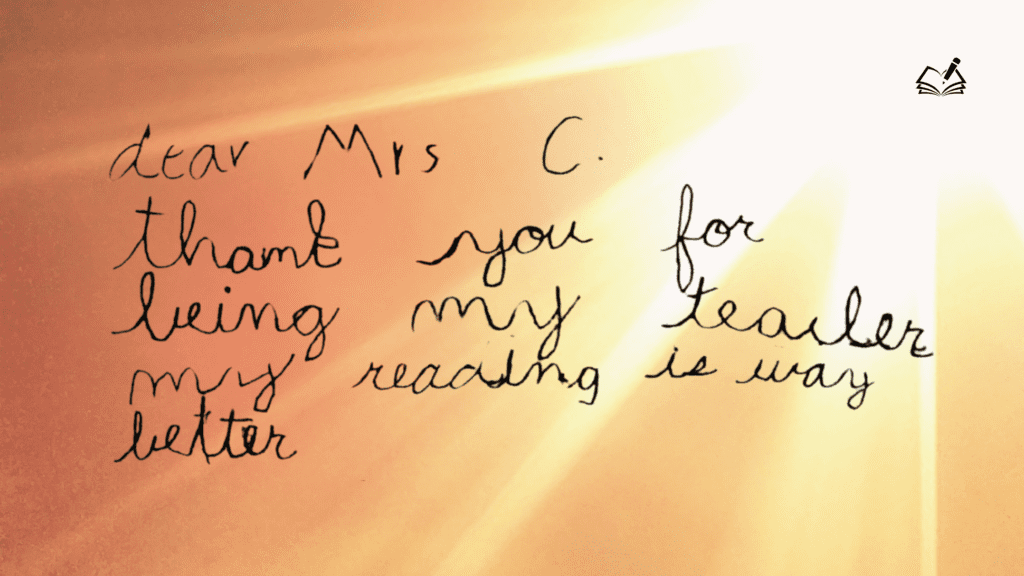 dear Mrs C.
thank you for
being my teacher
my reading is way
better